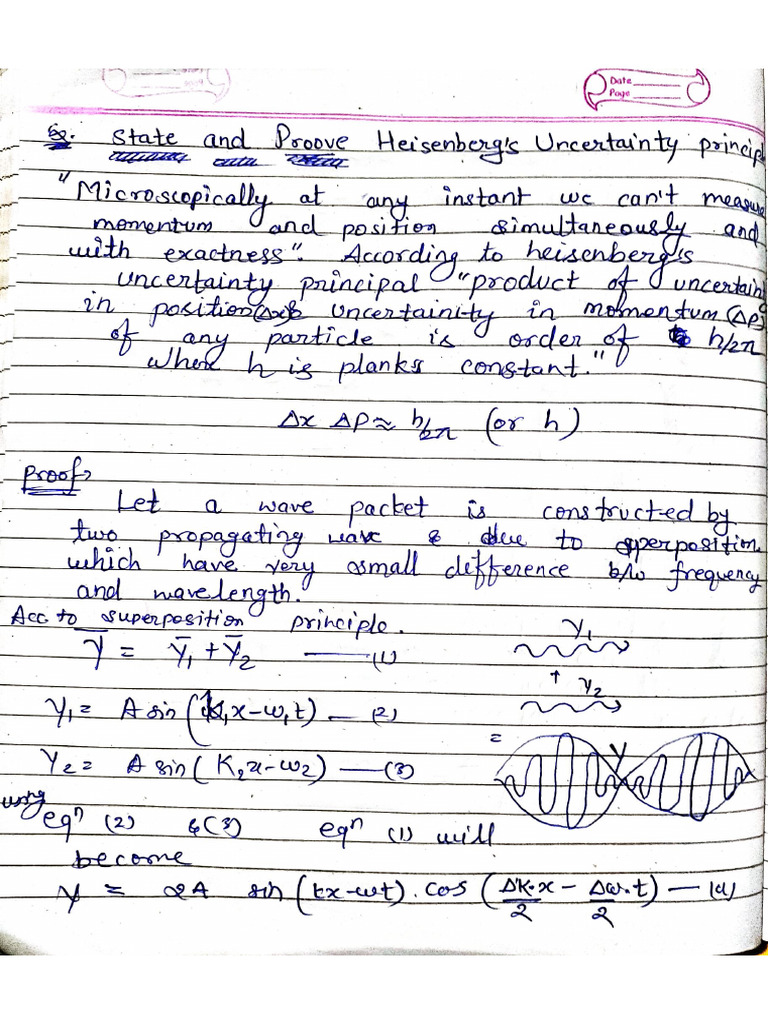 Date
Page
Q. State and Proove Heisenberg's Uncertainty princip
"Microscopically at any instant we can't measure
momentum and position simultaneously and
with exactness". According to heisenberg's
uncertainty principal "product of uncertain
in position(Δx)& uncertainity in momentum(ΔP)
of any particle is order of h/2π
where h is planks constant."
Δx ΔP ≈ h/2π (or h)
Proof→
Let a wave packet is constructed by
two propagating wave & due to superposition
which have very small difference b/w frequency
and wavelength.
Acc. to superposition principle.
Y̅ = Y̅₁ + Y̅₂ —— (1)
Y₁
Y₁ = A sin (K₁x-w₁t) — (2)
+ Y₂
=
Y
Y₂ = A sin( K₂x-w₂) —— (3)
using
eqⁿ (2) &(3) eqⁿ (1) will
become
Y = 2A sin(kx-wt). cos (ΔK.x/2 - Δω.t/2) — (4)